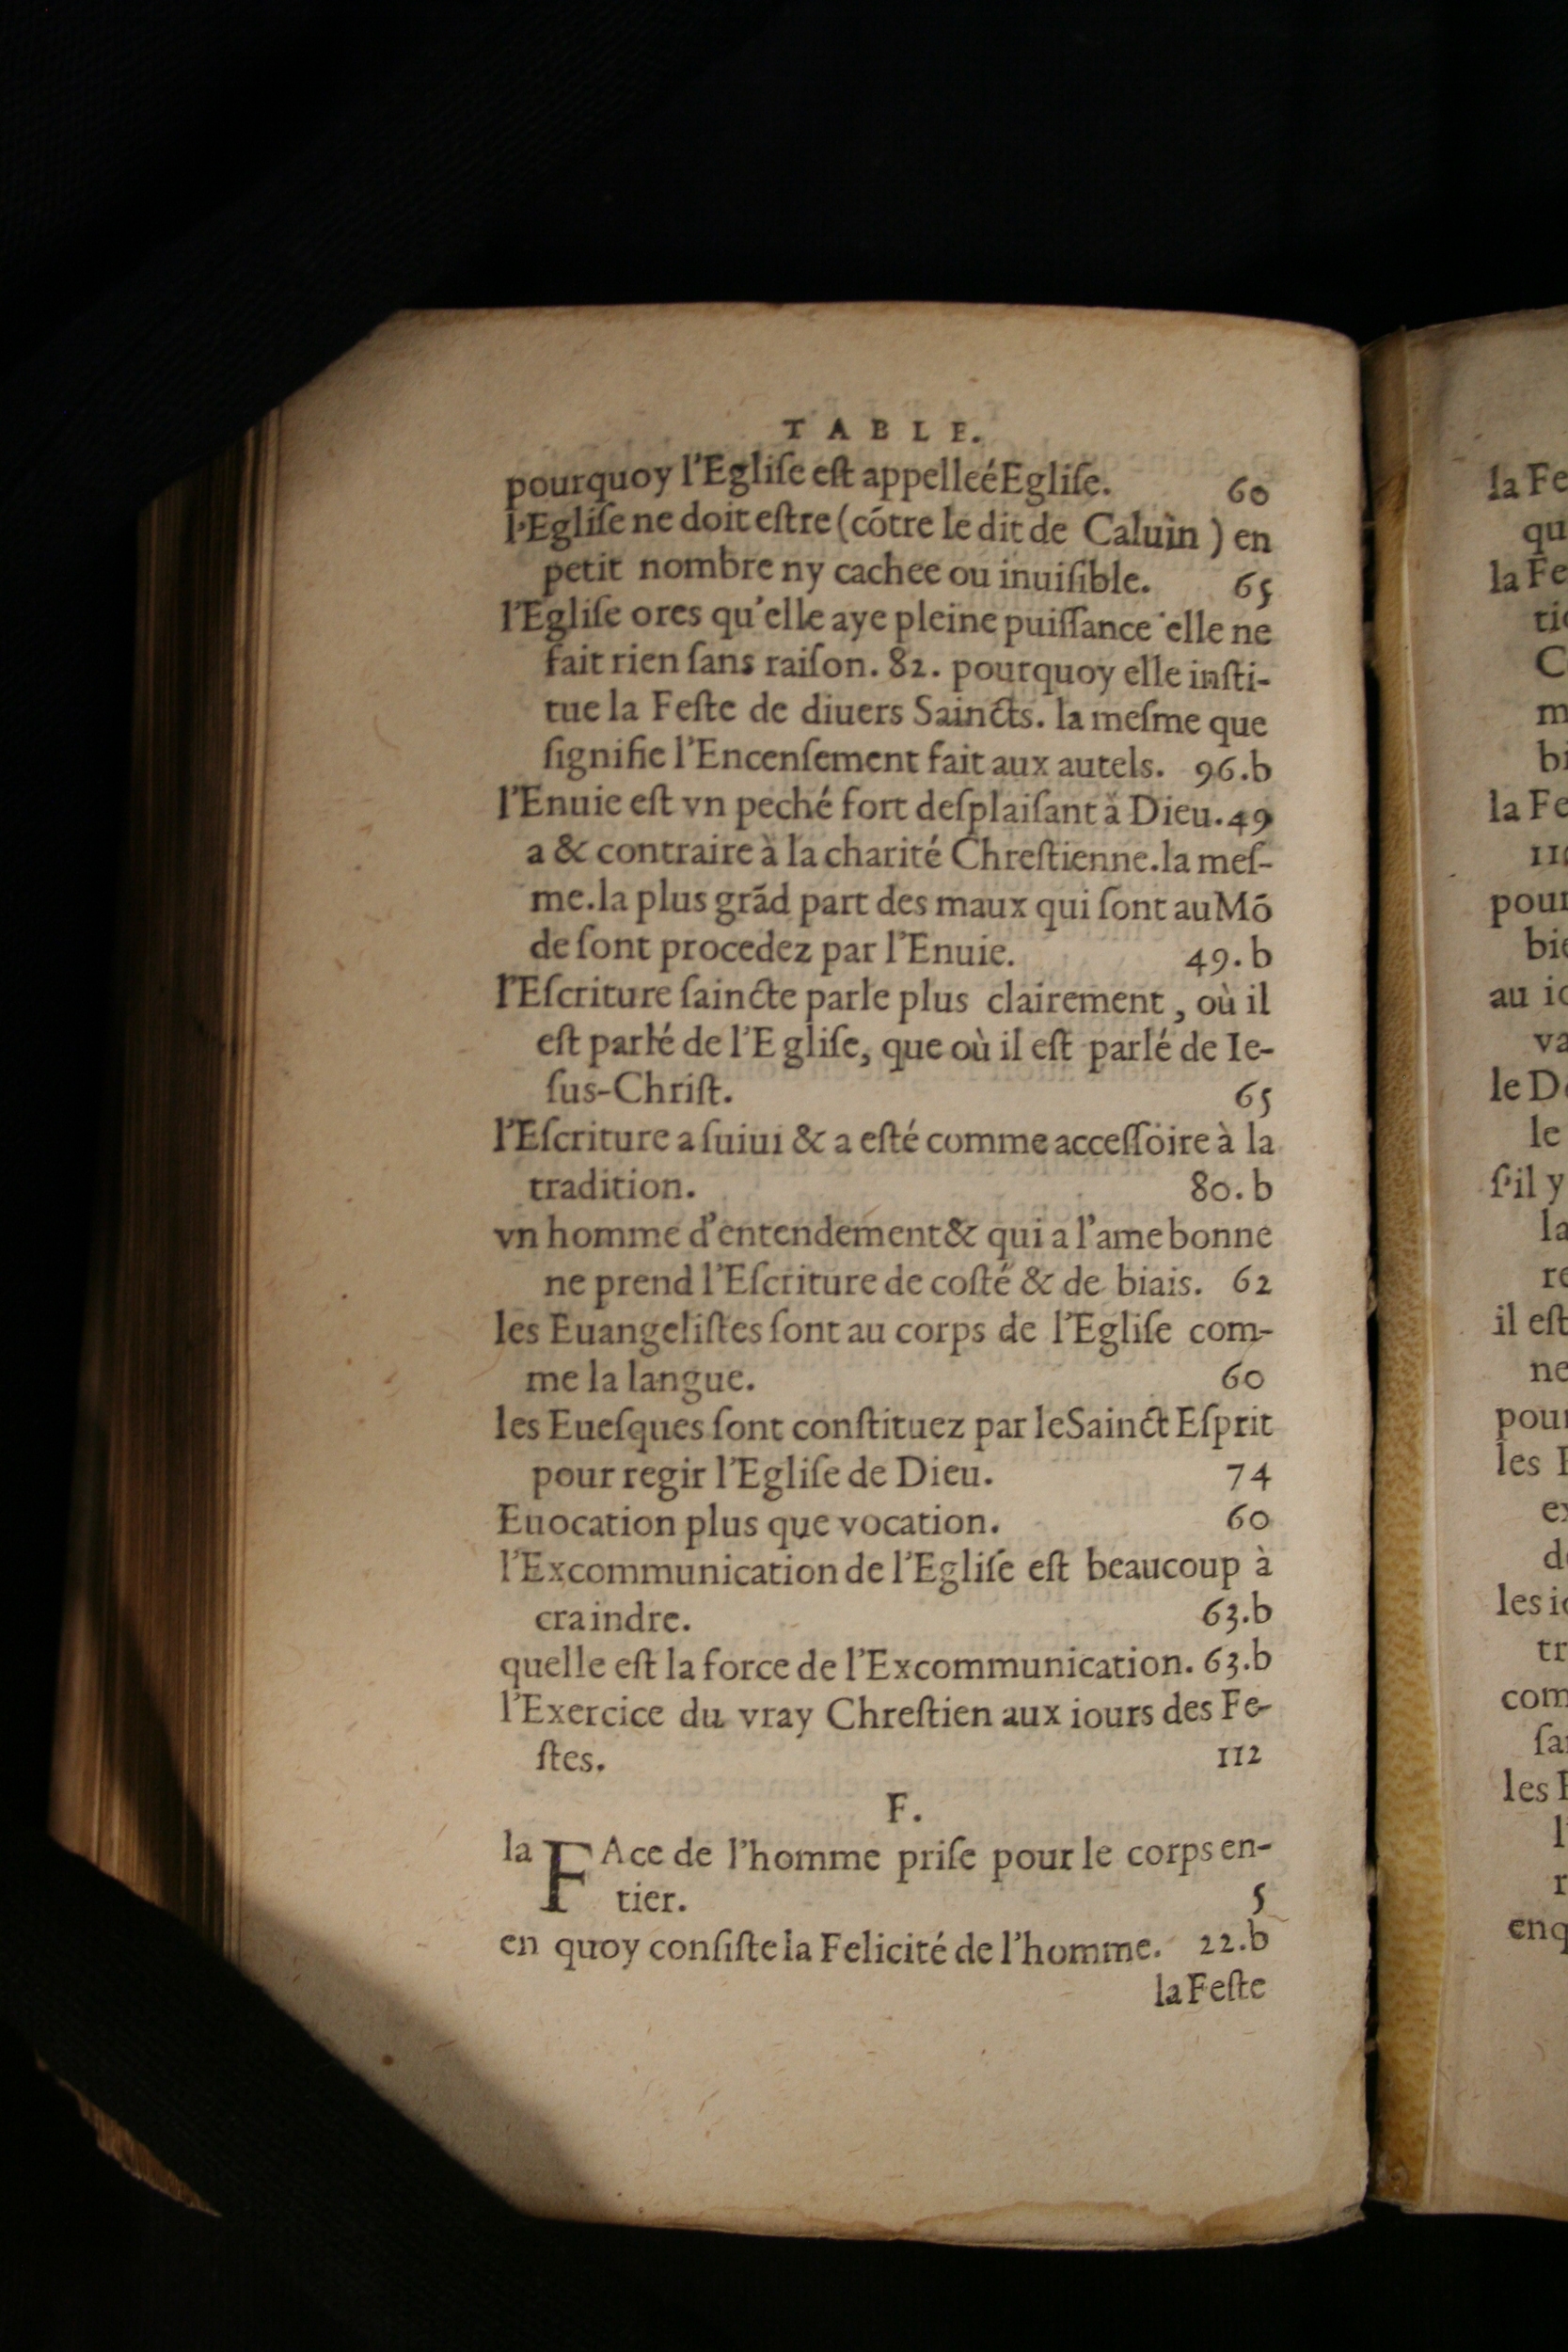 TABLE.
pourquoy l'Egliſe eſt appelleéEgliſe. 60
l'Egliſe ne doit eſtre (cótre le dit de Caluin) en
petit nombre ny cachee ou inuiſible. 65
l'Egliſe ores qu'elle aye pleine puiſſance elle ne
fait rien ſans raiſon. 82. pourquoy elle inſti-
tue la Feſte de diuers Saincts. la meſme que
ſignifie l'Encenſement fait aux autels. 96.b
l'Enuie eſt vn peché fort deſplaiſant à Dieu.49
a & contraire à la charité Chreſtienne.la meſ-
me.la plus grãd part des maux qui ſont au Mõ
de ſont procedez par l'Enuie. 49.b
l'Eſcriture ſaincte parle plus clairement, où il
eſt parlé de l'Egliſe, que où il eſt parlé de Ie-
ſus-Chriſt. 65
l'Eſcriture a ſuiui & a eſté comme acceſſoire à la
tradition. 80.b
vn homme d'entendement& qui a l'ame bonne
ne prend l'Eſcriture de coſté & de biais. 62
les Euangeliſtes ſont au corps de l'Egliſe com-
me la langue. 60
les Eueſques ſont conſtituez par le Sainct Eſprit
pour regir l'Egliſe de Dieu. 74
Euocation plus que vocation. 60
l'Excommunication de l'Egliſe eſt beaucoup à
craindre. 63.b
quelle eſt la force de l'Excommunication. 63.b
l'Exercice du vray Chreſtien aux iours des Fe-
ſtes. 112
F.
la FAce de l'homme priſe pour le corps en-
tier. 5
en quoy conſiſte la Felicité de l'homme. 22.b
la Feſte
la Fe
qu
la Fe
C
m
bi
la Fe
pour
bie
au io
va
le D
le
ſ'il y
la
re
il eſt
ne
pour
les
ex
de
les io
tr
com
les
enq